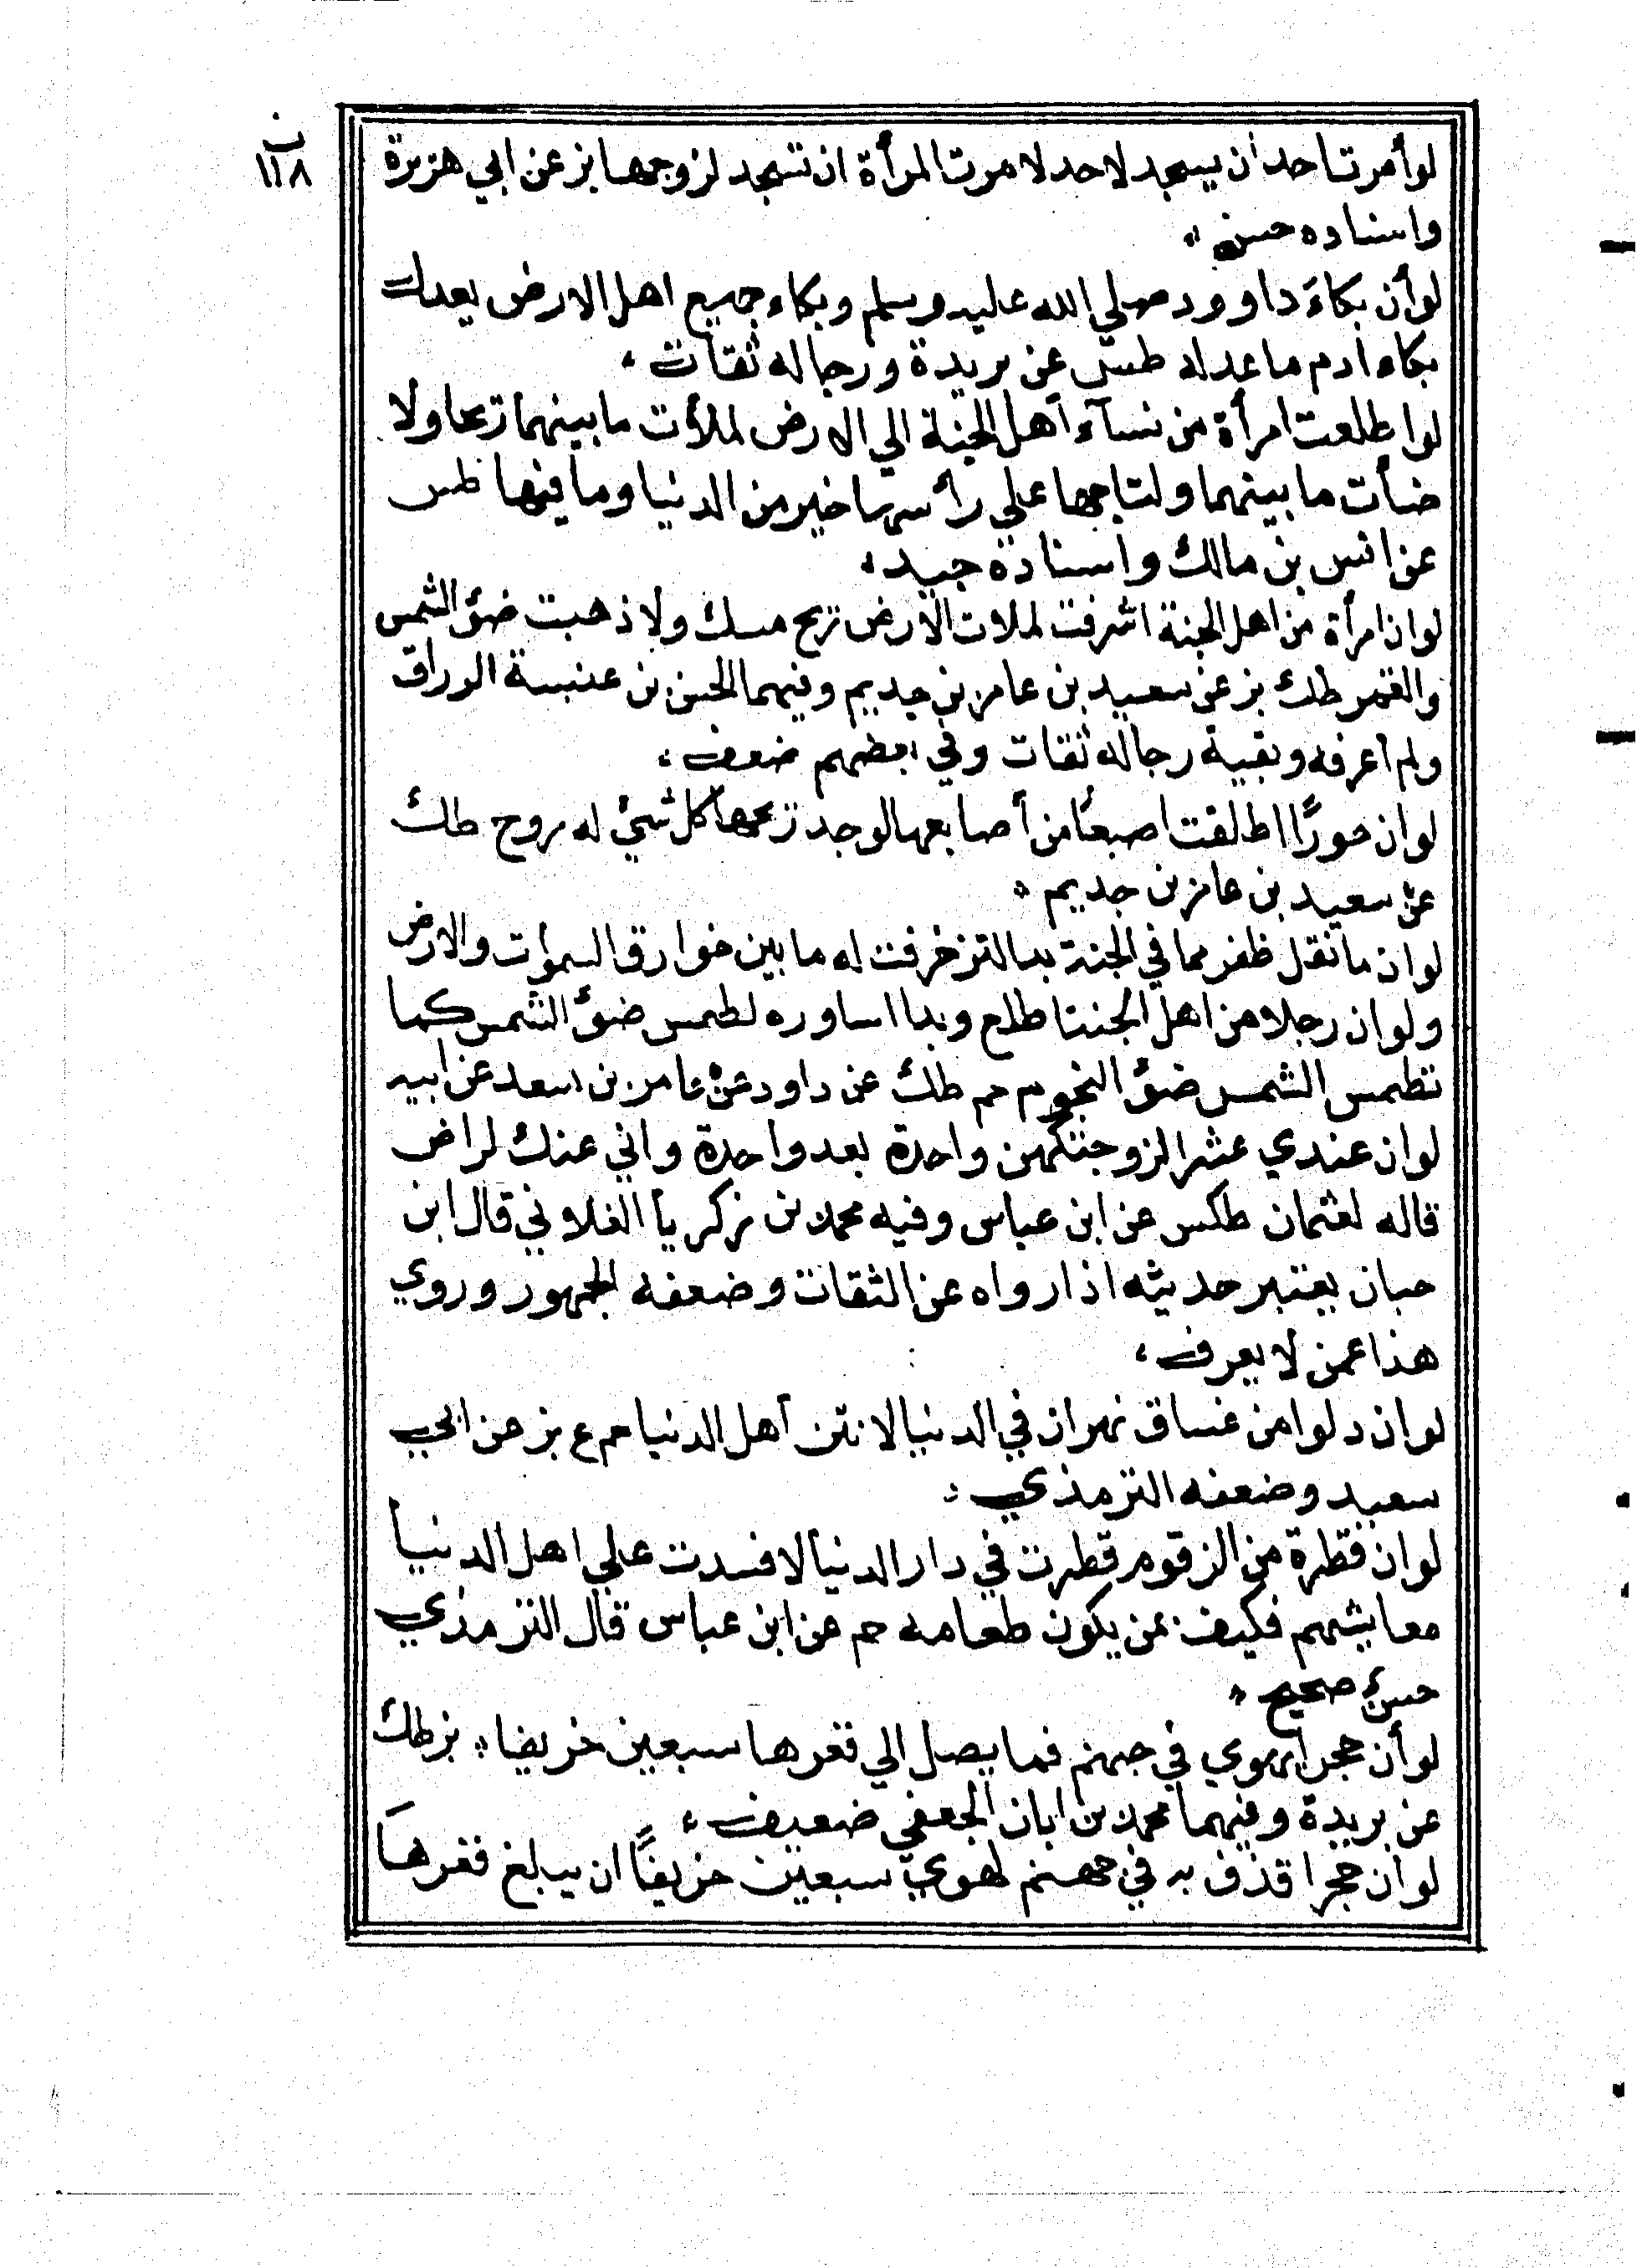 ن
١١٨
لوأمرت احدا أن يسجد لاحد لامرت المرأة ان تسجد لزوجها بز عن ابي هريرة
واسناده حسن
لوأن بكاءَ داوود صلي الله عليه وسلم وبكاء جميع اهل الارض يعدل
بكاء ادم ما عدله طس عن بريدة ورجاله ثقات
لو اطلعت امرأة من نسآء أهل الجنة الي الارض لملأت ما بينهما ريحا ولا
ضأت ما بينهما ولتاجها علي رأسها خير من الدنيا وما فيها طس
عن انس بن مالك واسناده جيد
لو ان امرأة من اهل الجنة اشرفت لملات الارض ريح مسك ولاذهبت ضؤ الشمس
والقمر طك بز عن سعيد بن عامر بن جديم وفيهما الحسن بن عنبسة الوراق
ولم أعرفه وبقية رجاله ثقات وفي بعضهم ضعف
لوان حورًا اطلقت اصبعًا من أصابعها لوجد ريحها كل شيء له روح طك
عن سعيد بن عامر بن جديم
لوان ما نقل ظفر مما في الجنة بدا لتزخرفت له ما بين خوارق السموات والارض
ولوان رجلا من اهل الجنة اطلع وبدا اساوره لطمس ضؤ الشمس كما
تطمس الشمس ضؤ النجوم حم طك عن داود عن عامر بن سعد عن ابيه
لوان عندي عشرا لزوجتكهن واحدة بعد واحدة واني عنك لراض
قاله لعثمان طكس عن ابن عباس وفيه محمد بن زكريا الغلاوني قال ابن
حبان يعتبر حديثه اذا رواه عن الثقات وضعفه الجمهور وروي
هذا عمن لا يعرف
لوان دلوا من غساق نهران في الدنيا لانتن أهل الدنيا حم ع بز عن ابي
سعيد وضعفه الترمذي
لوان قطرة من الزقوم قطرت في دار الدنيا لافسدت علي اهل الدنيا
معايشهم فكيف بمن يكون طعامه حم عن ابن عباس قال الترمذي
حسن صحيح
لوأن حجرا يهوي في جهنم فما يصل الي قعرها سبعين خريفا بز طك
عن بريدة وفيهما محمد بن ابان الجعفي ضعيف
لوأن حجرا قذف به في جهنم لهوي سبعين خريفًا ان يبلغ قعرها